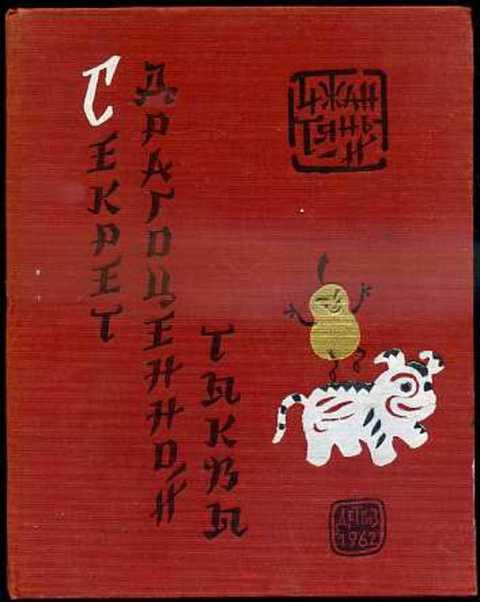 СЕКРЕТ
ДРАГОЦЕННОЙ
ТЫКВЫ
ЧЖАН
ТЯНЬ-
И
ДЕТГИЗ
1962